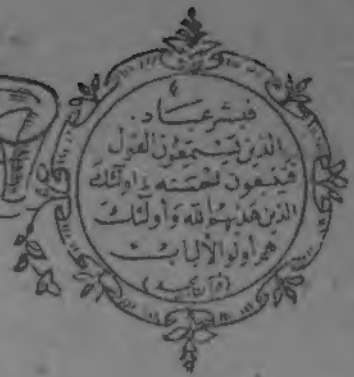 فبشر عباد .
الذين يستمعون القول
فيتبعون احسنه ء اولئك
الذين هديهم الله و أولئك
هم أولو الالباب
(قرآن مجيد)